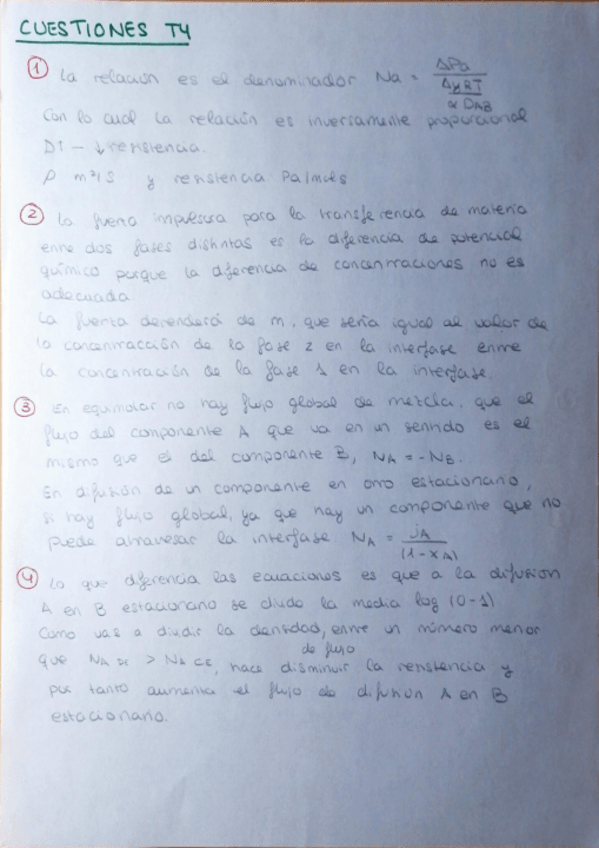 CUESTIONES T4
① La relación es el denominador Na = ΔPa / (Δy RT / α DAB)
Con lo cual la relación es inversamente proporcional
D↑ - ↓ resistencia.
D m²/s y resistencia Pa/moles
② La fuerza impulsora para la transferencia de materia
entre dos fases distintas es la diferencia de potencial
químico porque la diferencia de concentraciones no es
adecuada
La fuerza dependerá de m, que sería igual al valor de
la concentracción de la fase 2 en la interfase entre
la concentración de la fase 1 en la interfase.
③ En equimolar no hay flujo global de mezcla, que el
flujo del componente A que va en un sentido es el
mismo que el del componente B, NA = -NB.
En difusión de un componente en otro estacionario,
si hay flujo global, ya que hay un componente que no
puede atravesar la interfase NA = jA / (1-xA)
④ Lo que diferencia las ecuaciones es que a la difusion
A en B estacionario se divide la media log (0-1)
Como vas a dividir la densidad de flujo, entre un número menor
que NA > NA CE, hace disminuir la resistencia y
por tanto aumenta el flujo de difusión A en B
estacionario.